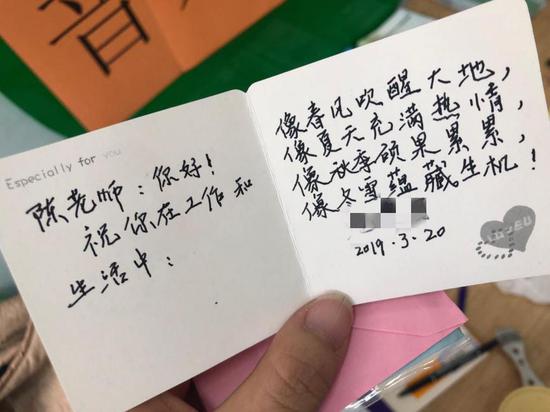 音
Especially for you
陈老师:你好!
祝你在工作和
生活中:
像春风吹醒大地,
像夏天充满热情,
像秋季硕果累累,
像冬雪蕴藏生机!
2019.3.20